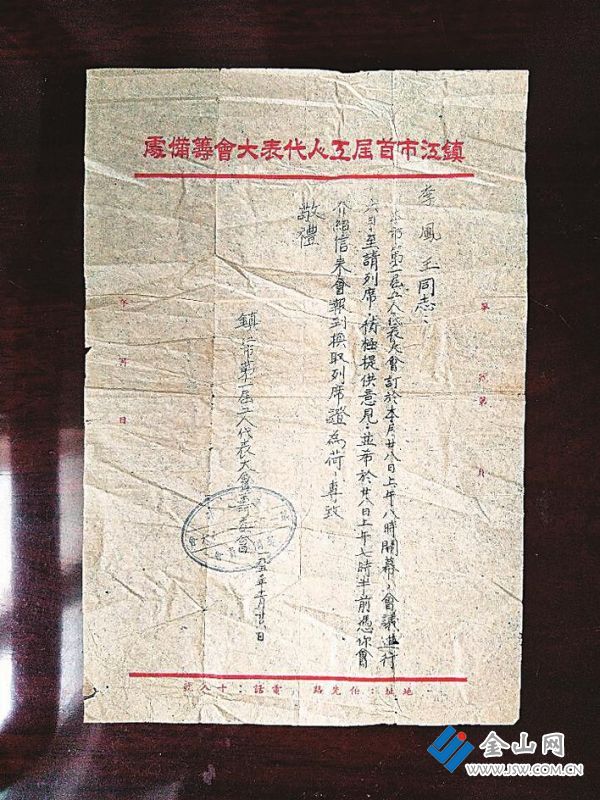 鎮江市首屆工人代表大會籌備處
李鳳玉同志：
本市第一屆工人代表大會訂於本月廿八日上午八時開幕，會議進行
六日，至請列席，積極提供意見，並希於廿八日上午七時半前憑你會
介紹信來會報到換取列席證為荷。專致
敬禮
鎮江市第一屆工人代表大會籌委會
年 月 日
地址：伯先路 電話：十八號
金山网
WWW.JSW.COM.CN